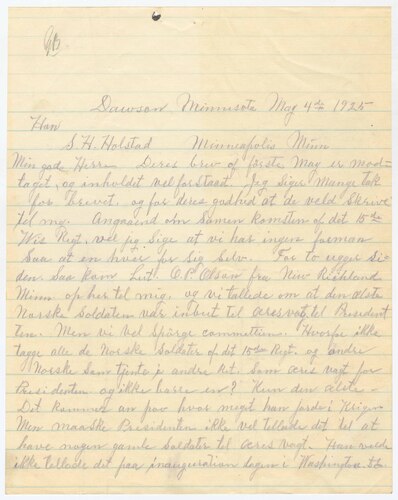 Dawson, Minnesota May 4th 1925
Hon
S. H. Holstad Minneapolis Minn
Min gode Herre Deres brev of første May er mod-
taget, og inholdet vel forstaat. Jeg siger Mange tak
for brevet, og for deres godhed at de veld Skrive
til mig. Angaaend om Samen komsten of det 15de
Wis Regt, vel jeg Sige at vi har ingen forman
Saa at en hver for Sig Selv. For to uger Si-
den Saa kam Leut. O.P. Olson fra New Richland
Minn op her til mig, og vi tallede om at den ælste
Norske Soldaten var inbut til æresvagt til President
ten. Men vi vel Spørge committeen. Hvorfor ikke
tagge alle de Norske Soldater of det 15de Regt. og andre
Norske Som tjente i andre Ret. Som æres vagt for
Presidenten og ikke barre en? Hem den ælste -
Det kommer an paa hvor megit han fordi i Krigen
Men maaske Presidenten ikke vel tellade det til at
have nogen gamle Soldater til æres vagt. Han velde
ikke tellade det paa inauguration dagen i Washington D.C.